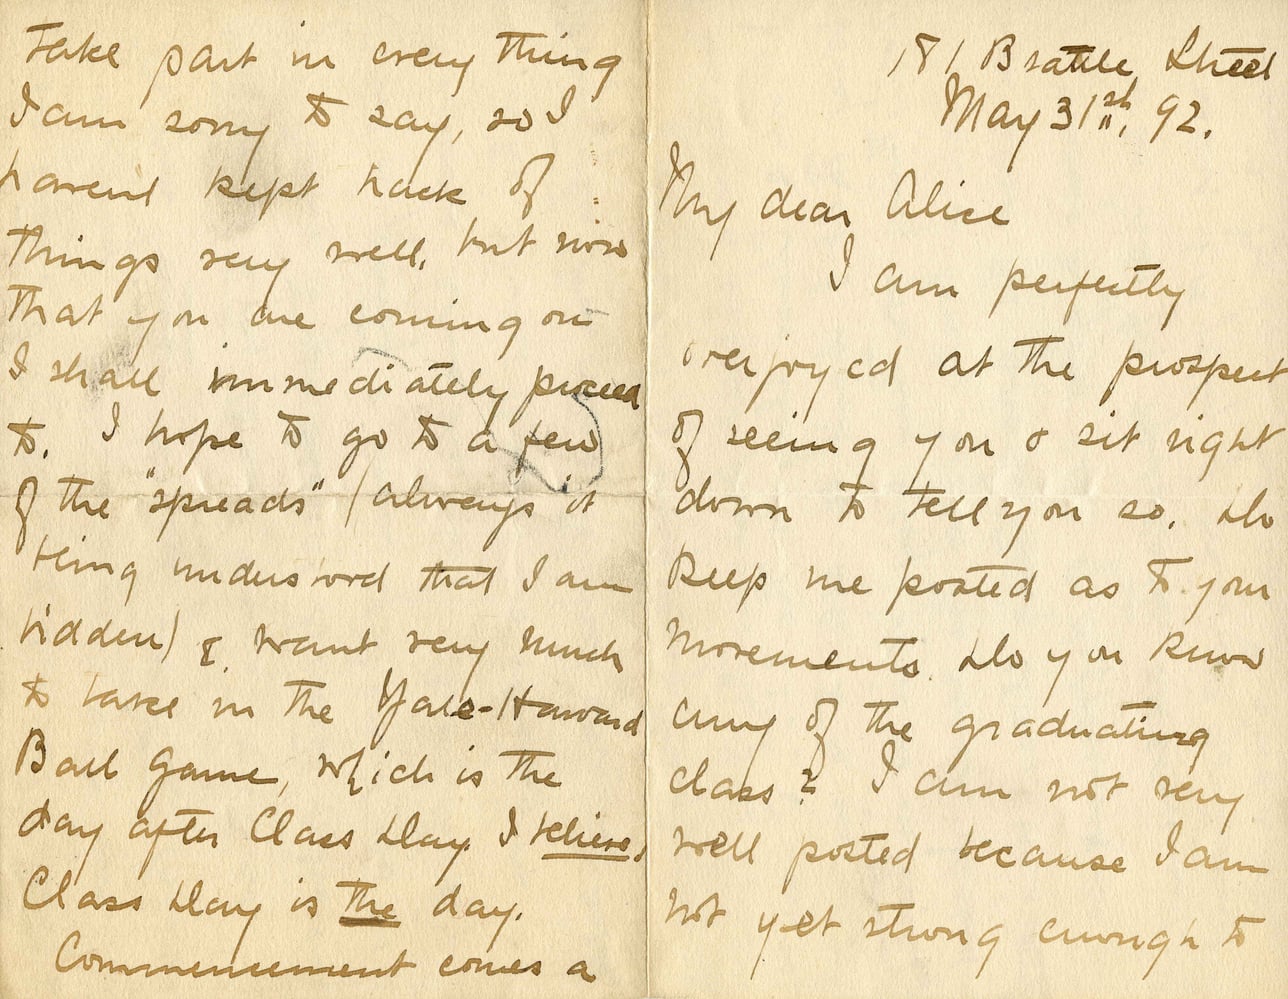 181 Brattle Street
May 31st, 92.
My dear Alice
I am perfectly
overjoyed at the prospect
of seeing you & sit right
down to tell you so. Do
keep me posted as to your
movements. Do you know
any of the graduating
class? I am not very
well posted because I am
not yet strong enough to
take part in every thing
I am sorry to say, so I
haven't kept track of
things very well, but now
that you are coming on
I shall immediately proceed
to. I hope to go to a few
of the "spreads" (always it
being understood that I am
bidden) & want very much
to take in the Yale-Harvard
Ball Game, which is the
day after Class Day I believe,
Class Day is the day.
Commencement comes a